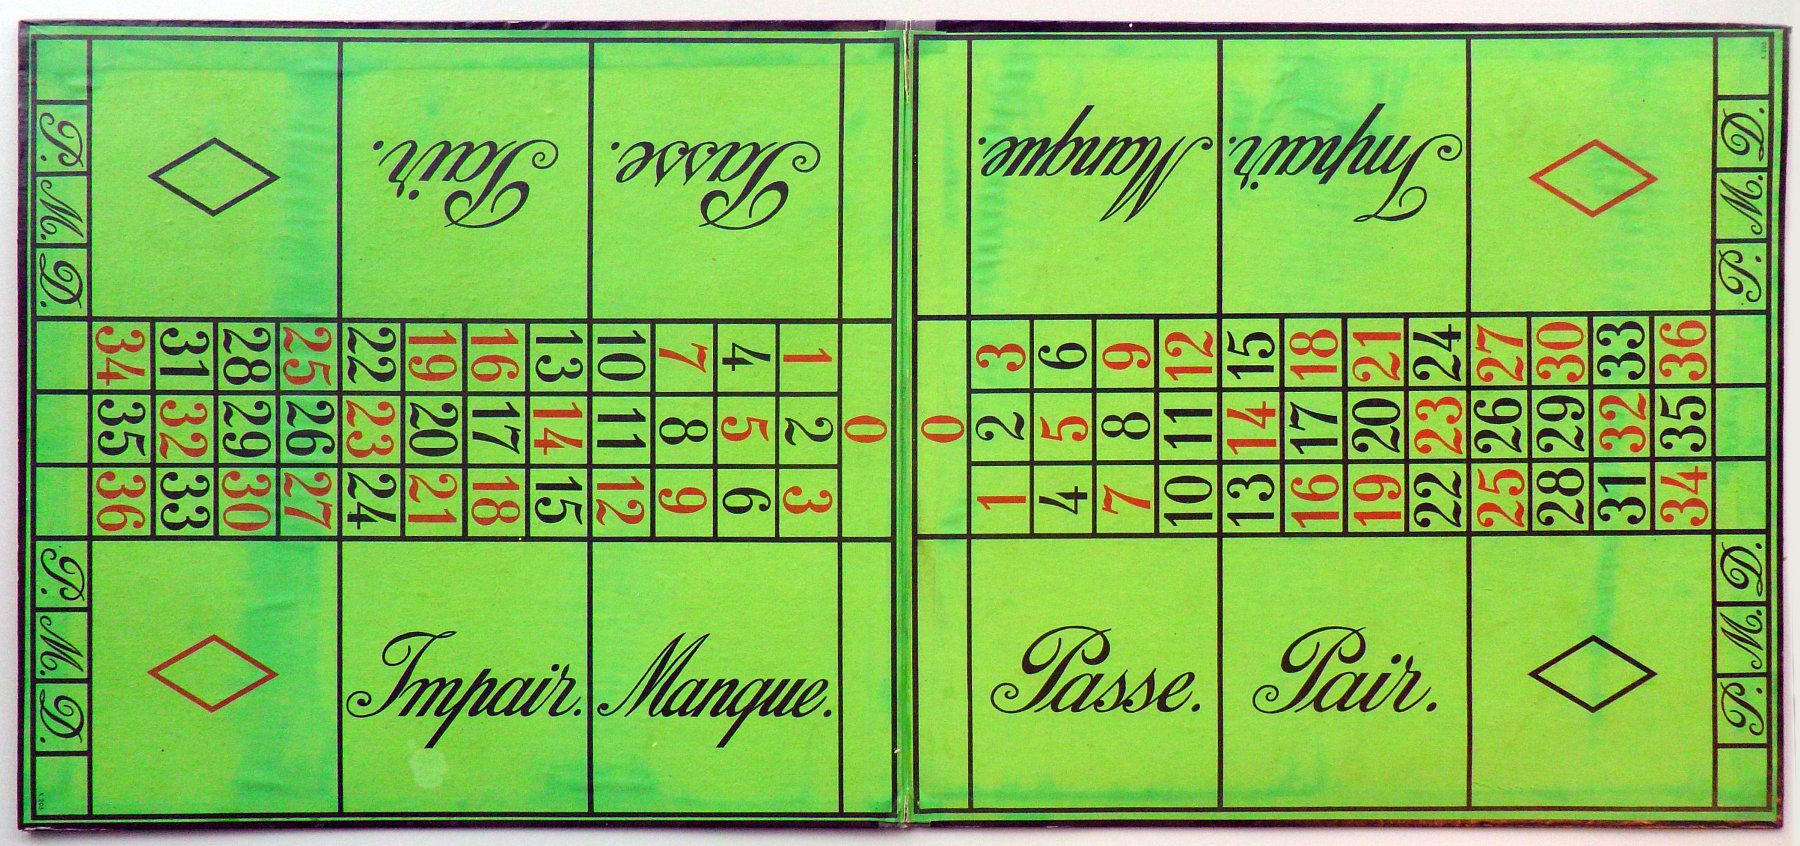 Pair. Passe. Manque. Impair.
P. M. D.
D. M. P.
34 31 28 25 22 19 16 13 10 7 4 1
35 32 29 26 23 20 17 14 11 8 5 2 0
36 33 30 27 24 21 18 15 12 9 6 3
3 6 9 12 15 18 21 24 27 30 33 36
0 2 5 8 11 14 17 20 23 26 29 32 35
1 4 7 10 13 16 19 22 25 28 31 34
P. M. D.
D. M. P.
Impair. Manque. Passe. Pair.